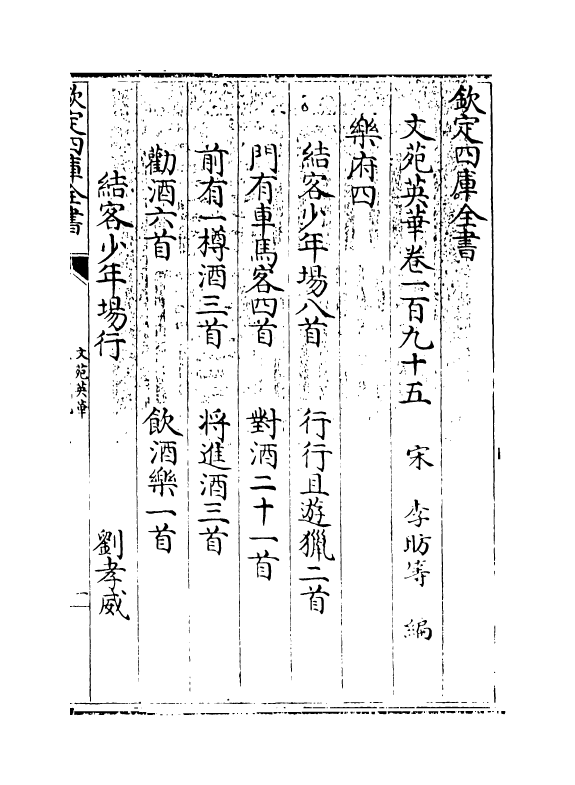 欽定四庫全書
文苑英華卷一百九十五 宋 李昉等 編
樂府四
結客少年場八首 行行且遊獵二首
門有車馬客四首 對酒二十一首
前有一樽酒三首 將進酒三首
勸酒六首 飲酒樂一首
結客少年場行 劉孝威
欽定四庫全書
文苑英華